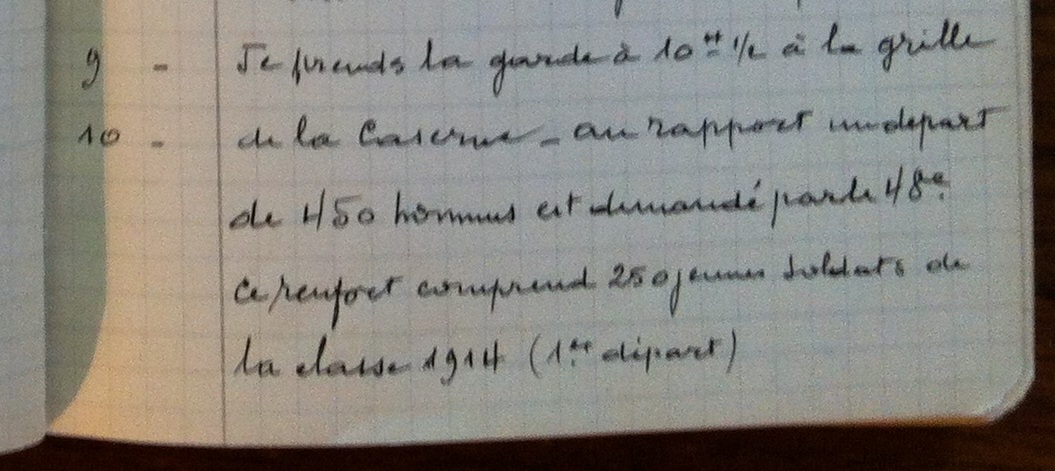 9 - Je prends la garde à 10 H ½ à la grille
10 - de la Caserne - au rapport un départ
de 450 hommes est demandé par le 48e.
ce renfort comprend 250 jeunes soldats de
la classe 1914 (1er départ)